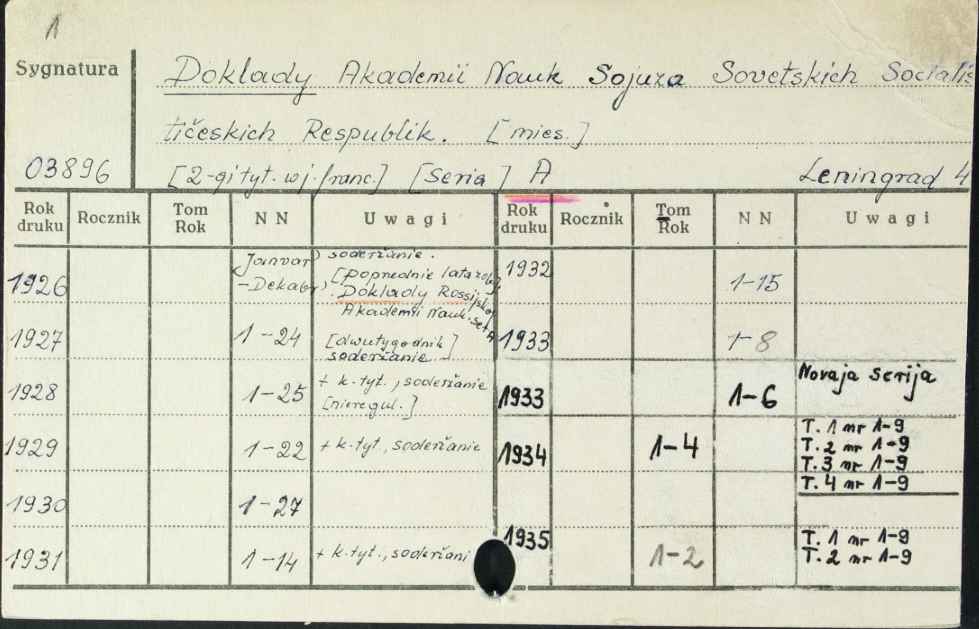 1
Sygnatura
Doklady Akademii Nauk Sojuza Sovetskich Sociali
tičeskich Respublik. [mies.]
03896
[2-gi tyt. w j. franc.] [Seria] A
Leningrad 4
Rok druku Rocznik Tom Rok NN Uwagi Rok druku Rocznik Tom Rok NN Uwagi
1926 Janvar' -Dekabr' soderžanie.
[poprednie lata zob.
Doklady Rossijskoj
Akademii Nauk. Ser A
1927 1-24 [dwutygodnik]
soderžanie
1928 1-25 + k. tyt., soderžanie
[nieregul.]
1929 1-22 + k. tyt., soderžanie
1930 1-27
1931 1-14 + k. tyt., soderžani
1932 1-15
1933 1-8
Novaja serija
1933 1-6
1934 1-4 T. 1 nr 1-9
T. 2 nr 1-9
T. 3 nr 1-9
T. 4 nr 1-9
1935 1-2 T. 1 nr 1-9
T. 2 nr 1-9